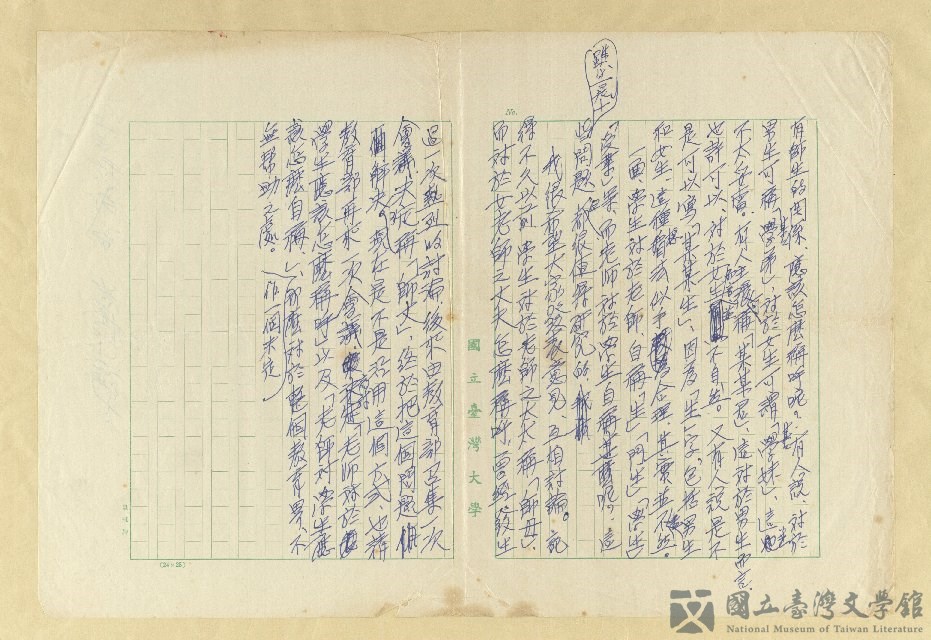 有師生的関係，應該怎麼稱呼呢？有人說，対於
男生可稱「學弟」，対於女生可謂「學妹」，這
不太合適。有人主張稱「某某君」，這対於男生而言，
也許可以，対於女生不自然。又有人說是不
是可以寫「某某生」，因為「生」字，包括男生
和女生，這種看法，似乎合理，其實並不然。
一面，學生対於老師自稱「生」「門生」「學生」
「受業」，而老師対於學生自稱甚麼呢？這
些問題都很值得研究的。
我很希望大家發表意見，互相討論。記
得不久以前，學生対於老師之太太稱「師母」，
而対於女老師之丈夫怎麼稱呼，曾經發生
過一次熱烈的討論，後來由教育部召集一次
會議，決定稱「師丈」，終於把這個問題
解決。現在是不是採用這個方式，也請
教育部再來一次會議，決定「老師対於
學生應該怎麼稱呼」以及「老師対學生應
該怎麼自稱」，那麼対於整個教育界，不
無幫助之處。
（作個決定）
No.
國立臺灣大學
(24×25)
國立臺灣文學館
National Museum of Taiwan Literature